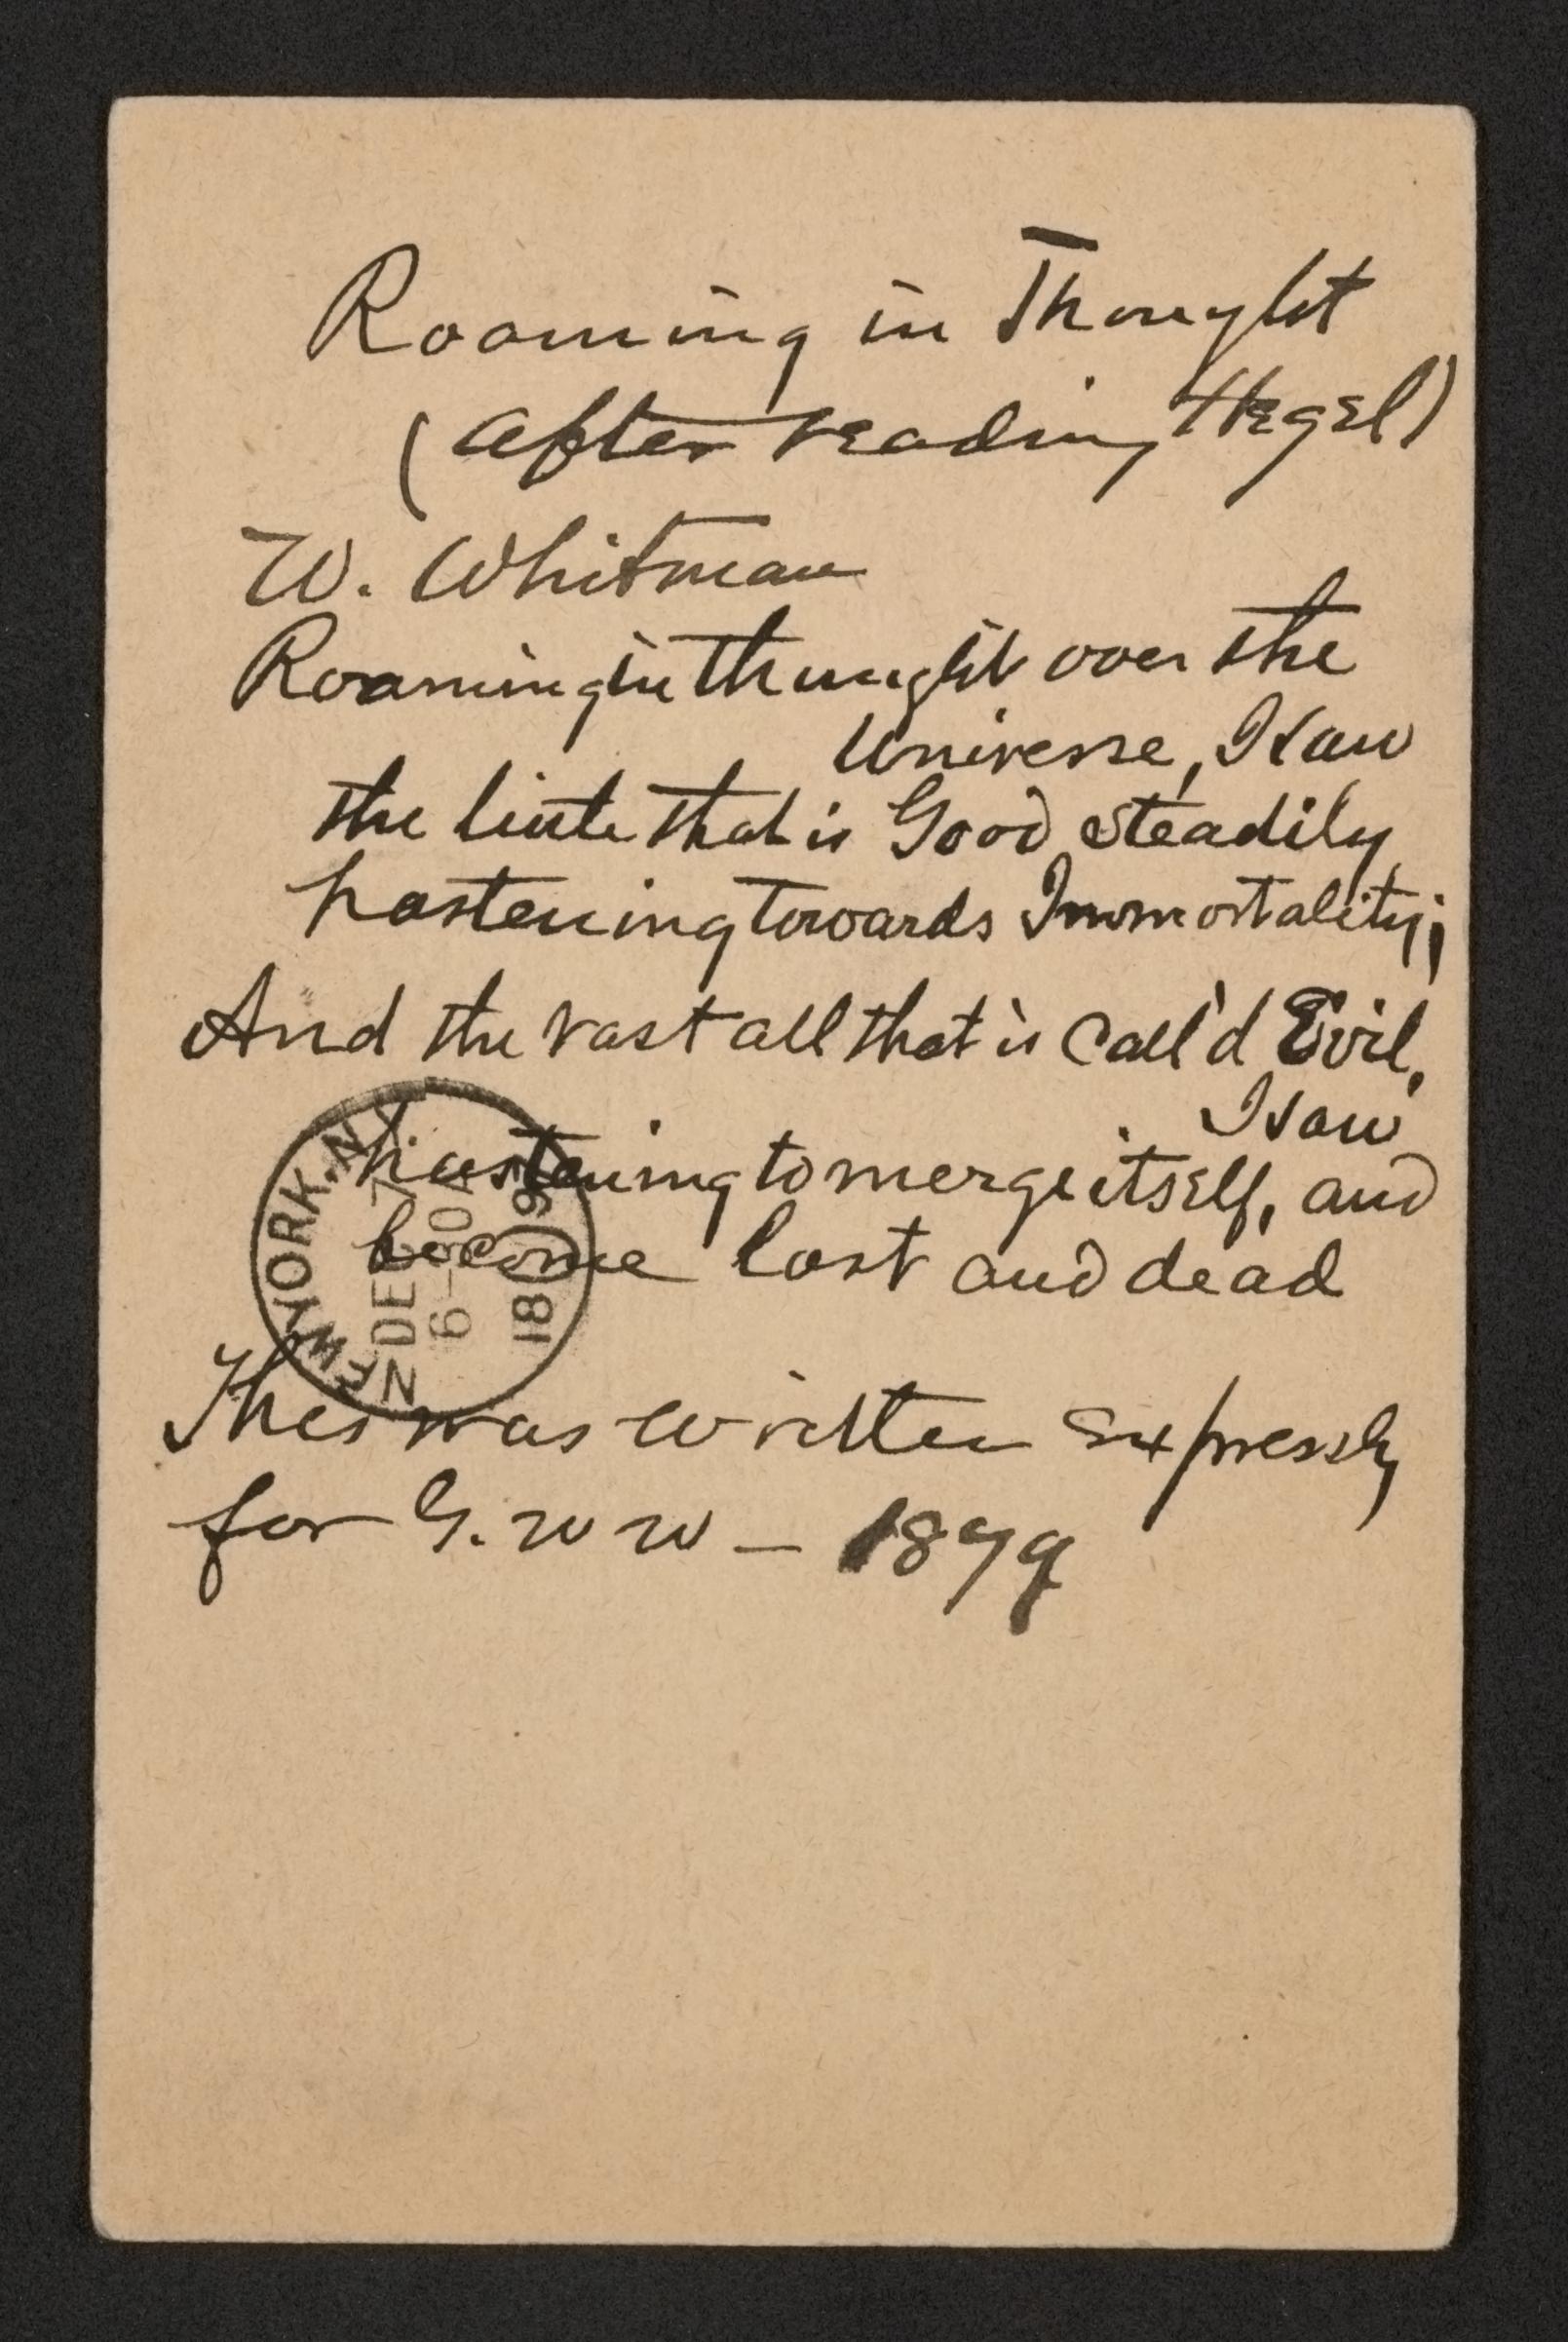 Roaming in Thought
(after reading Hegel)
W. Whitman
Roaming in thought over the
Universe, I saw
the little that is Good steadily
hastening towards Immortality;
And the vast all that is call'd Evil,
I saw
hastening to merge itself, and
become lost and dead
NEW YORK, N.Y.
DEC 7
6-
18
This was written expressly
for G. W W - 1879